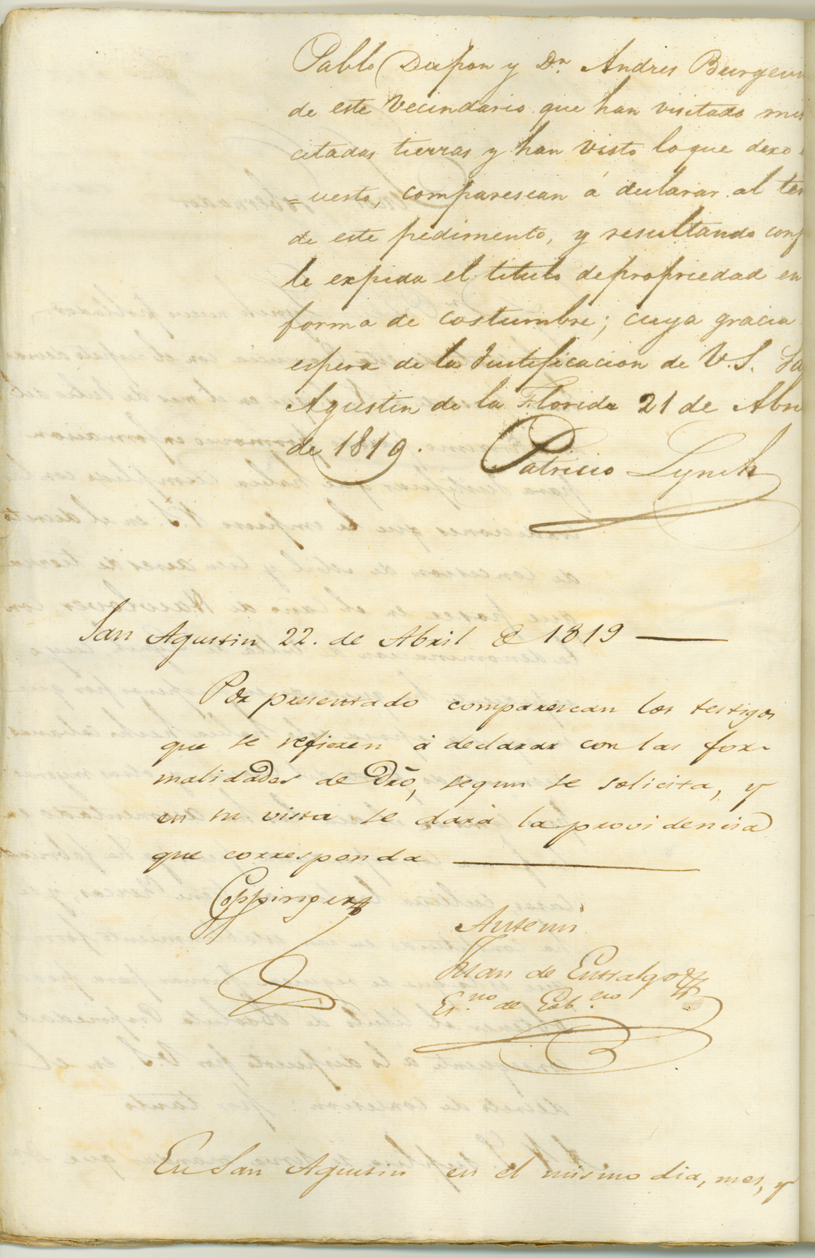 Pablo Dupon y Dn. Andres Burgevin
de este Vecindario que han visitado mis
citadas tierras y han visto lo que dexo
=uesto, comparescan á declarar al
de este pedimento, y resultando
le expida el titulo de propriedad en
forma de costumbre; cuya gracia
espera de la Justificacion de V.S. Sn
Agustin de la Florida 21 de Abri
de 1819.
Patricio Lynch
San Agustin 22. de Abril de 1819
Por presentado comparescan los testigos
que se refieren á declarar con las for-
malidades de Dro, segun se solicita, y
en su vista se dará la providencia
que corresponda
Coppinger
Antemi
Juan de Entralgo
Esno. de Gobno.
En San Agustin en el mismo dia, mes, y